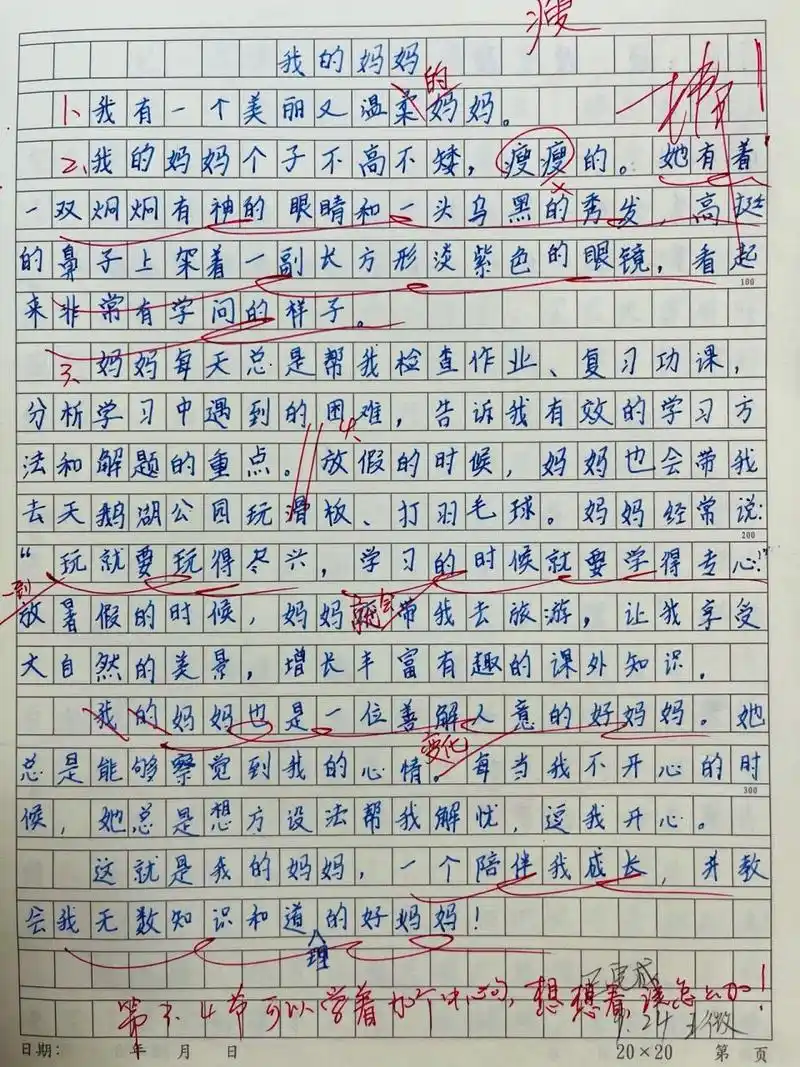 瘦
我的妈妈
的
1、我有一个美丽又温柔妈妈。
2、我的妈妈个子不高不矮，瘦瘦的。她有着
一双炯炯有神的眼睛和一头乌黑的秀发，高挺
的鼻子上架着一副长方形淡紫色的眼镜，看起
100
来非常有学问的样子。
3、妈妈每天总是帮我检查作业、复习功课，
分析学习中遇到的困难，告诉我有效的学习方
4、
法和解题的重点。放假的时候，妈妈也会带我
去天鹅湖公园玩滑板、打羽毛球。妈妈经常说：
200
“玩就要玩得尽兴，学习的时候就要学得专心！”
一到
放暑假的时候，妈妈就会带我去旅游，让我享受
大自然的美景，增长丰富有趣的课外知识．
我的妈妈也是一位善解人意的好妈妈。她
变化
总是能够察觉到我的心情。每当我不开心的时
300
候，她总是想方设法帮我解忧，逗我开心。
这就是我的妈妈，一个陪伴我成长，并教
会我无数知识和道的好妈妈！
理
第3、4节可以学着加个中心句，想想看，该怎么加！
日期： 年 月 日 20×20 第 页